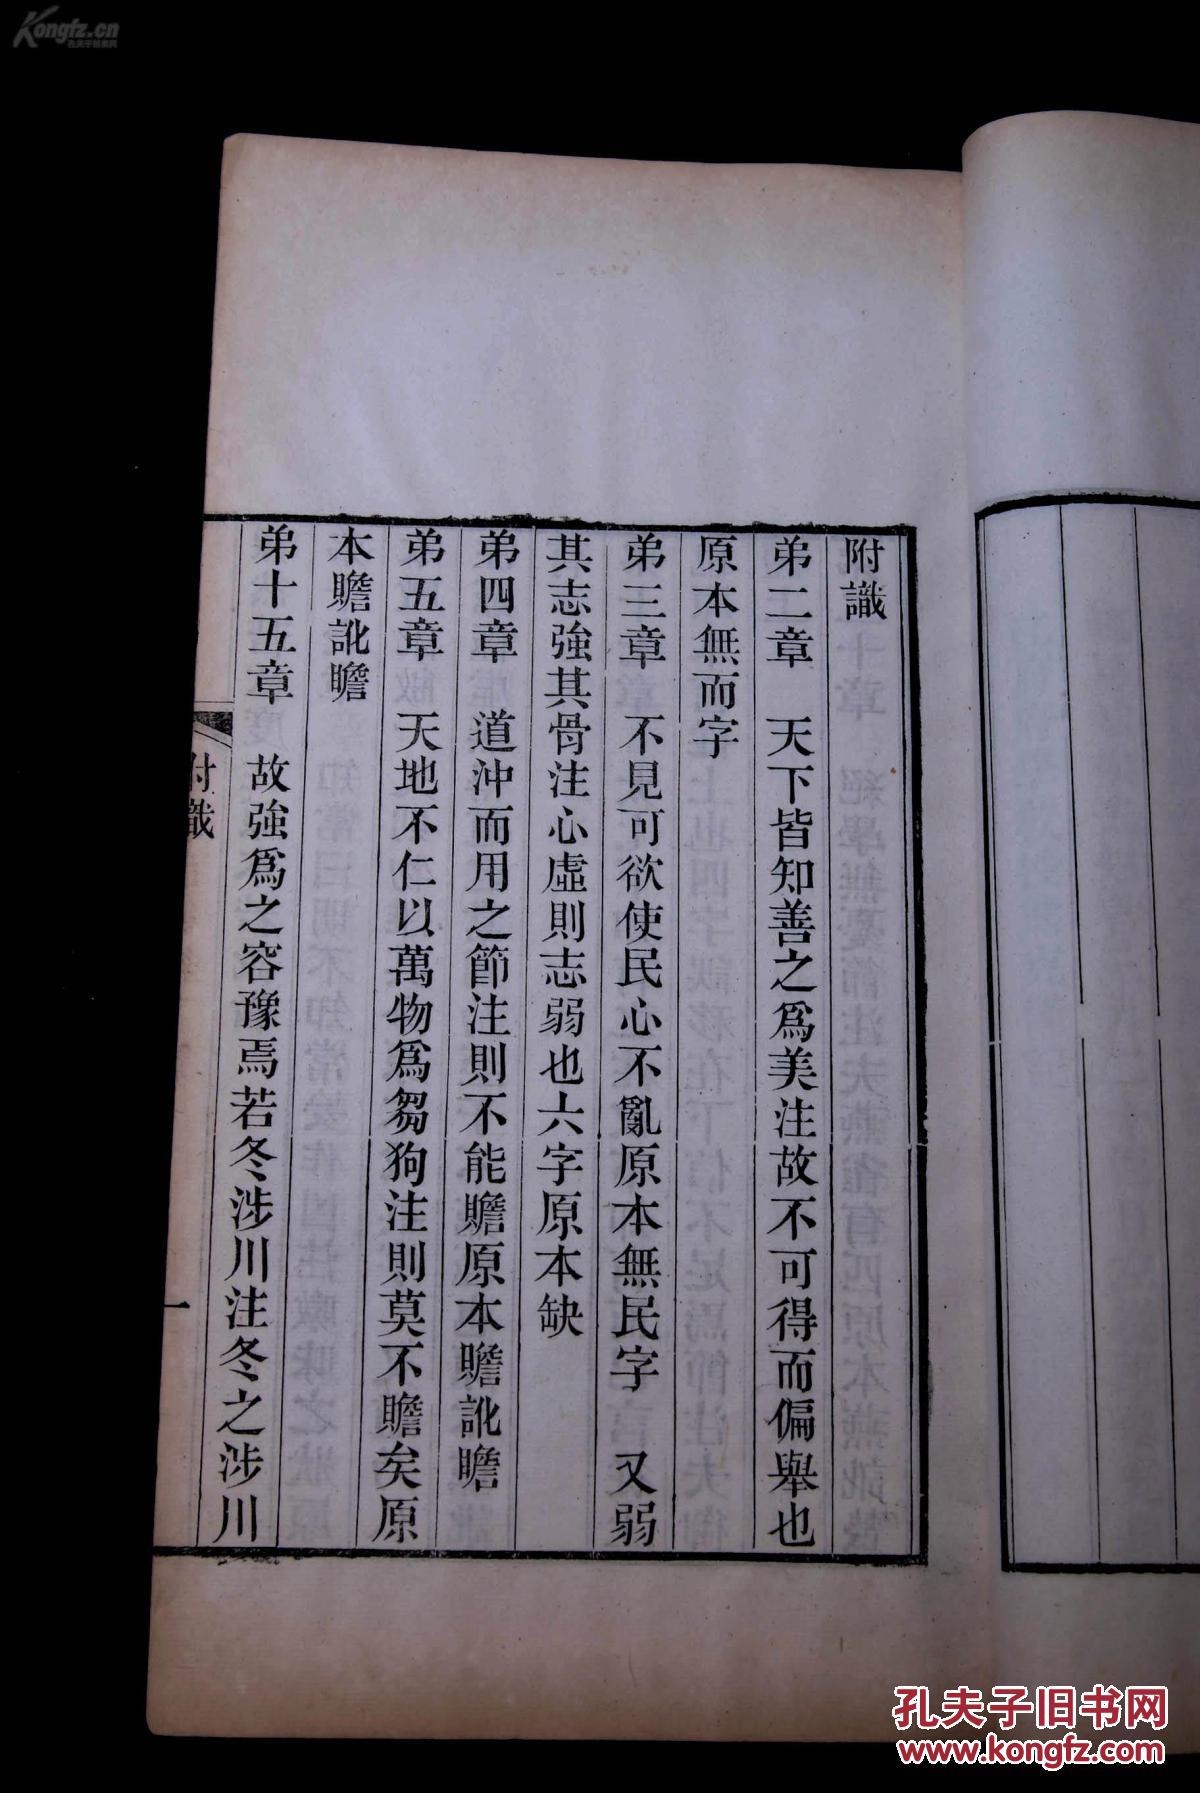 Kongfz.cn
孔夫子旧书网
附識
弟二章　天下皆知善之爲美注故不可得而偏舉也
原本無而字
弟三章　不見可欲使民心不亂原本無民字　又弱
其志強其骨注心虛則志弱也六字原本缺
弟四章　道沖而用之節注則不能贍原本贍訛瞻
弟五章　天地不仁以萬物爲芻狗注則莫不贍矣原
本贍訛瞻
弟十五章　故強爲之容豫焉若冬涉川注冬之涉川
附識
一
孔夫子旧书网
www.kongfz.com